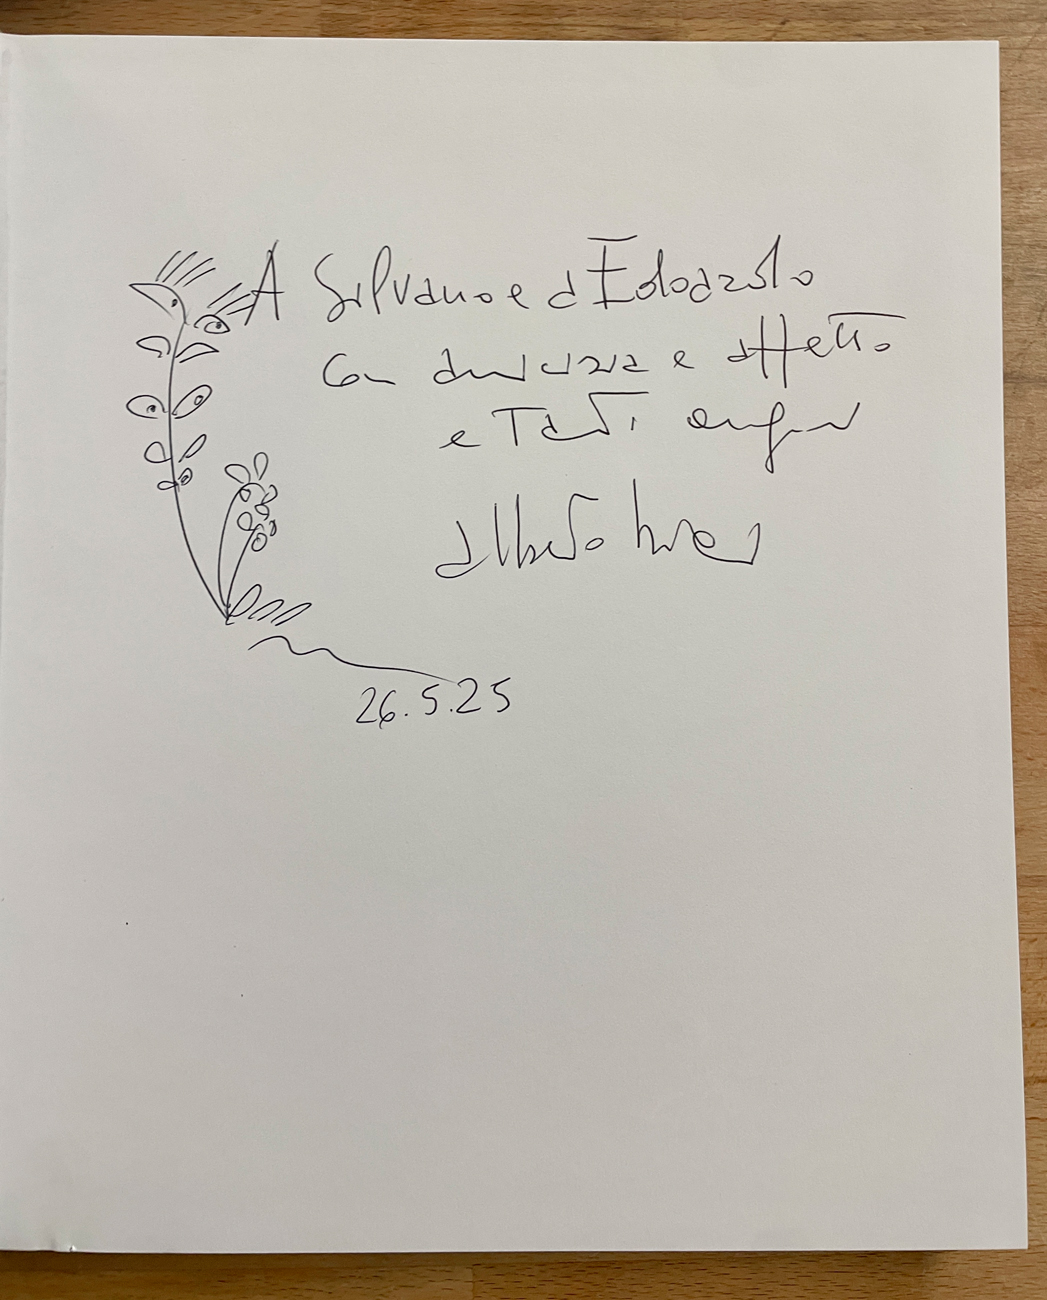 A Silvano e a Edoardo
Con amicizia e affetto
e Tanti auguri
Alberto
26.5.25